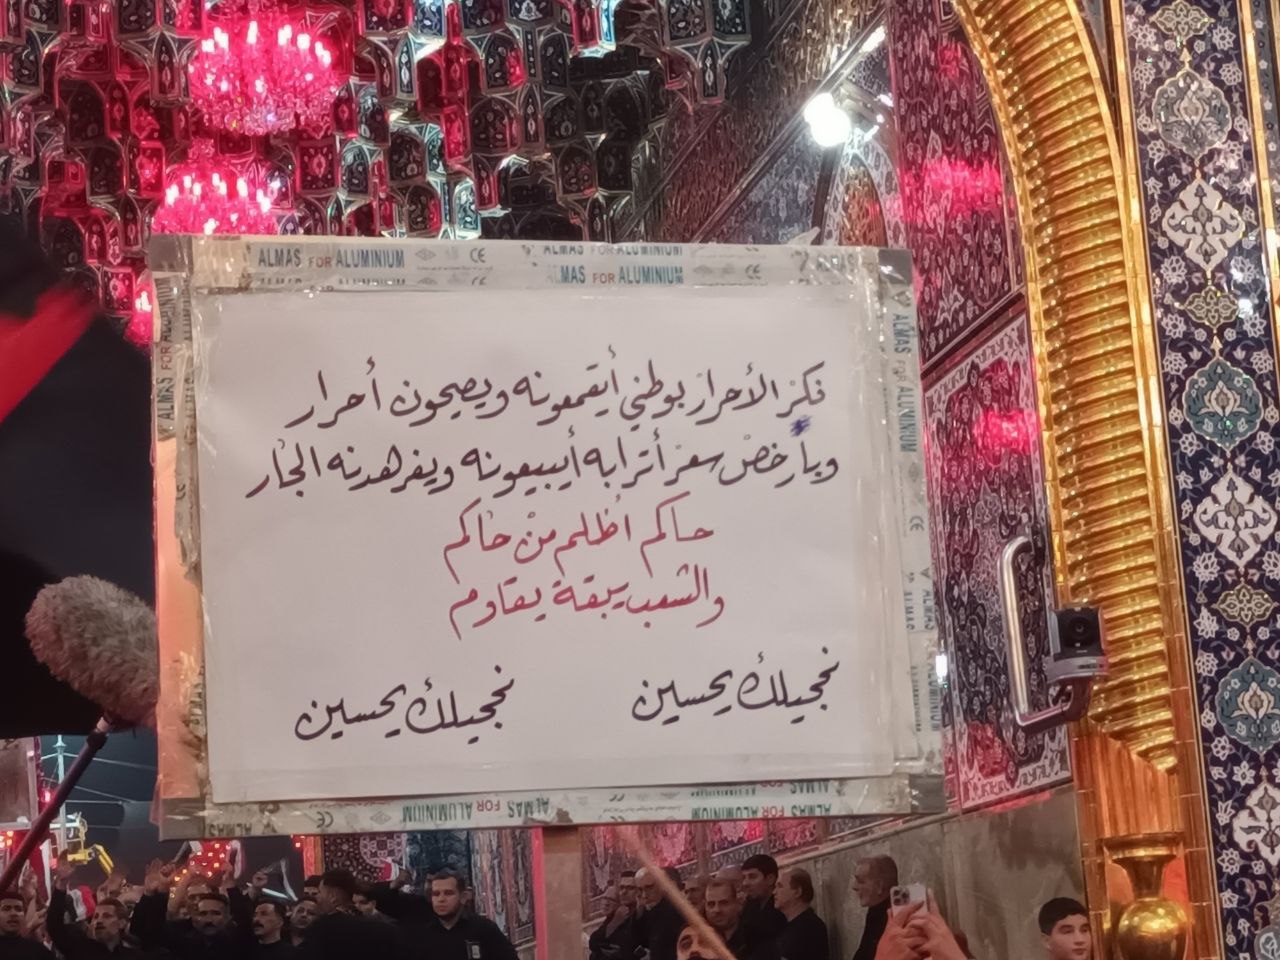 ALMAS FOR ALUMINIUM
ALMAS FOR ALUMINIUM
فكز الأحراز بوطني أيقمعونه ويصيحون أحرار
وبأرخص سعز أترابه أيبيعونه ويفرهدنه الجار
حاكم أظلم من حاكم
والشعب يبقة يقاوم
نججيلك يحسين نججيلك يحسين
ALMAS FOR ALUMINIUM
ALMAS FOR ALUMINIUM